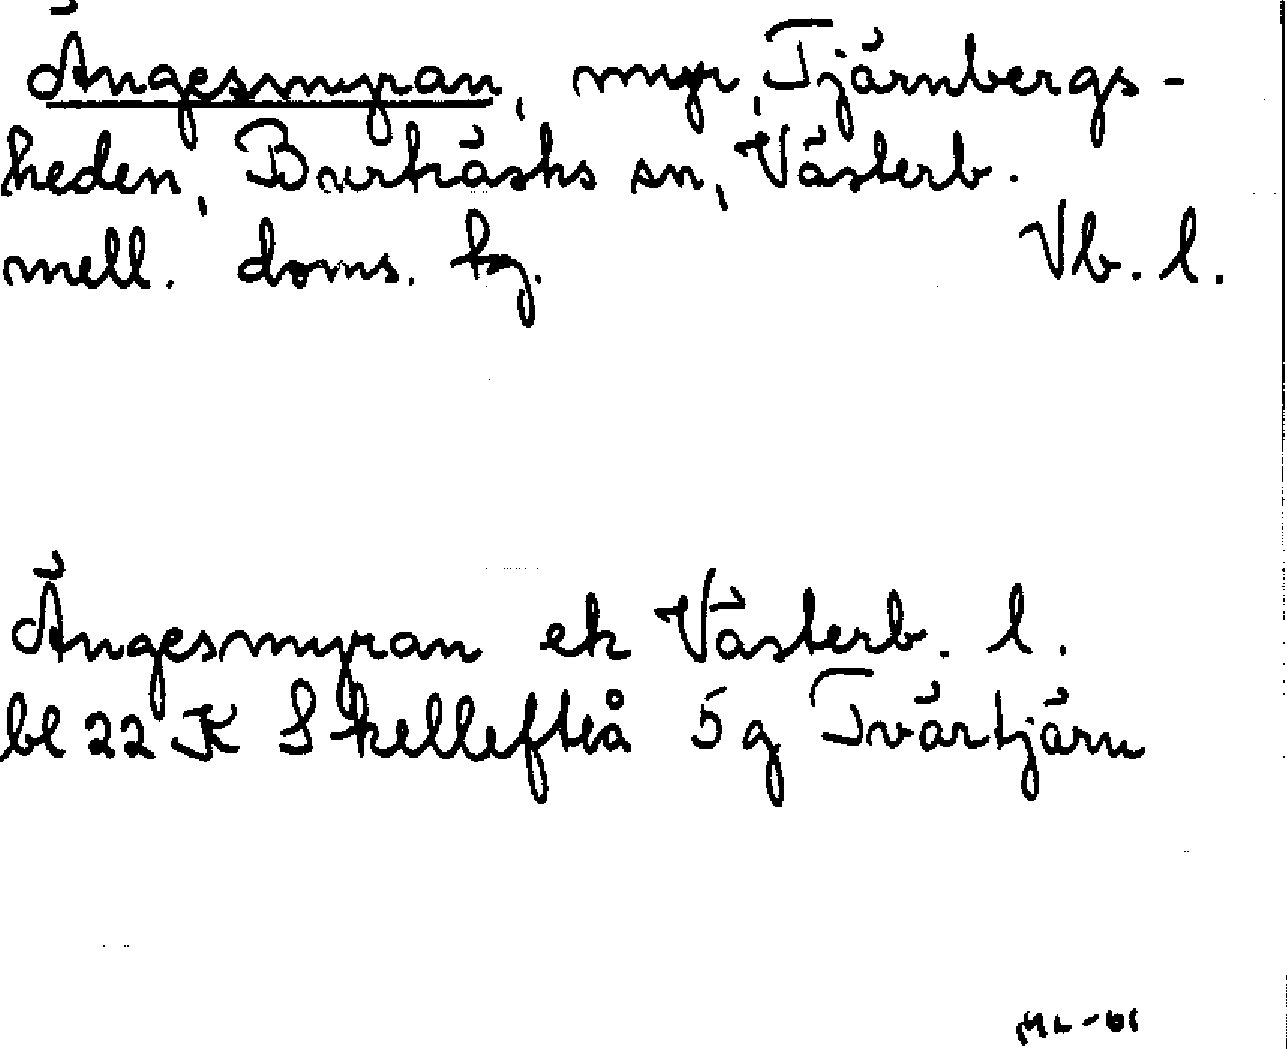 Ängesmyran, myr, Tjärnbergs-
heden, Burträsks sn, Västerb.
mell. doms. tg. Vb. l.
Ängesmyran ek Västerb. l.
bl 22 K Skellefteå 5 g Tvärtjärn